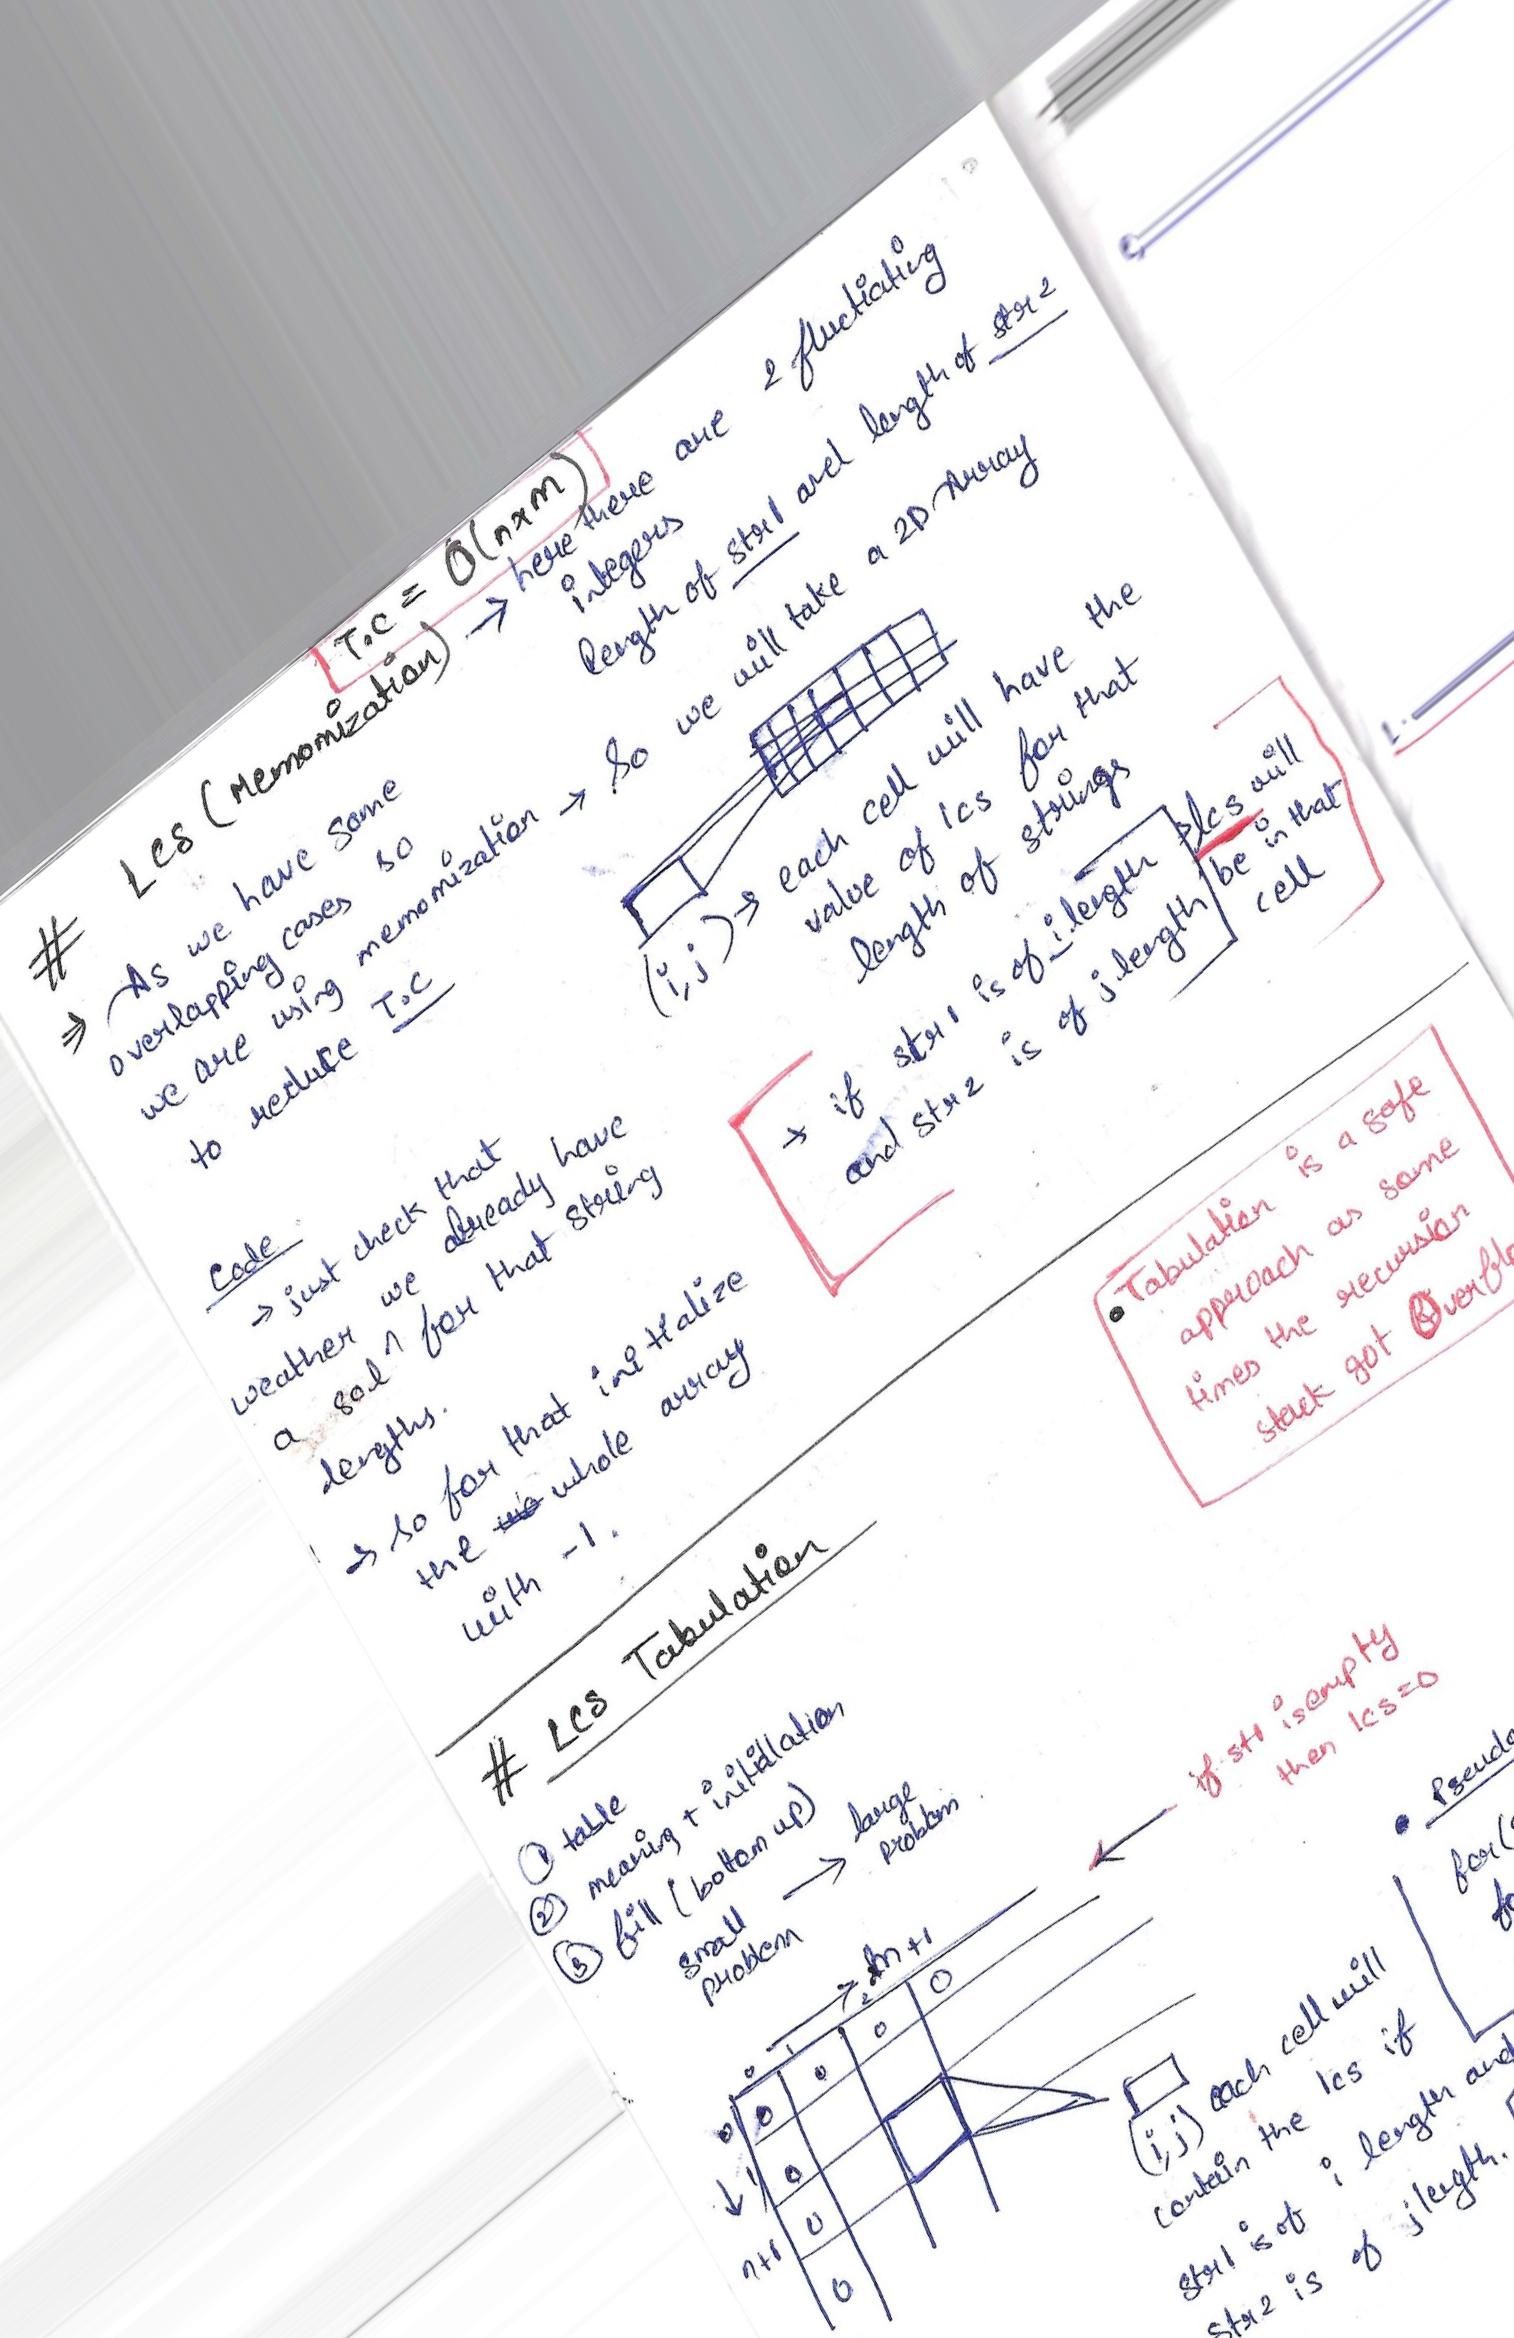 # LCS (Memomization)
T.C = O(n×m)
→ here there are 2 fluctiating
integers
length of str1 and length of str2
⇒ As we have some
overlapping cases so
we are using memomization
to reduce T.C
→ So we will take a 2D Array
(i,j) → each cell will have the
value of lcs for that
length of strings
→ if str1 is of i length
and str2 is of j length
lcs will
be in that
cell
Code
→ just check that
weather we already have
a soln for that string
lengths.
→ So for that initialize
the whole array
with -1.
• Tabulation is a safe
approach as some
times the recursion
stack got
# LCS Tabulation
① table
② meaning +
③ fill (bottom up)
small
problem
→ large
problem.
if st1 is empty
then lcs=0
m+1
0 1 2
0 0 0 0
1 0
0
n+1
0
(i,j) each cell will
contain the lcs if
str1 is of i length and
str2 is of j length.
• Pseudo
for(